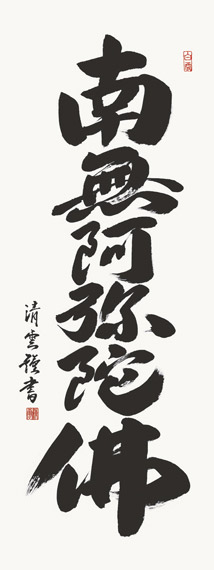 南無阿弥陀佛
清雲 書